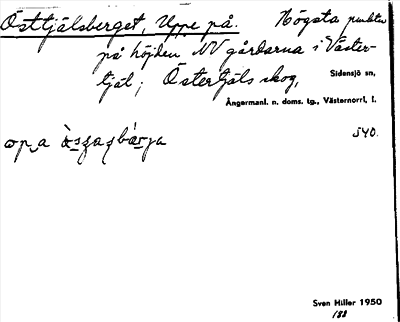 Östtjälsberget, Uppe på. Högsta punkten
på höjden NV gårdarna i Väster-
tjäl; Östertjäls skog,
Sidensjö sn,
Ångermanl. n. doms. tg., Västernorrl. l.
540.
Sven Hiller 1950
182